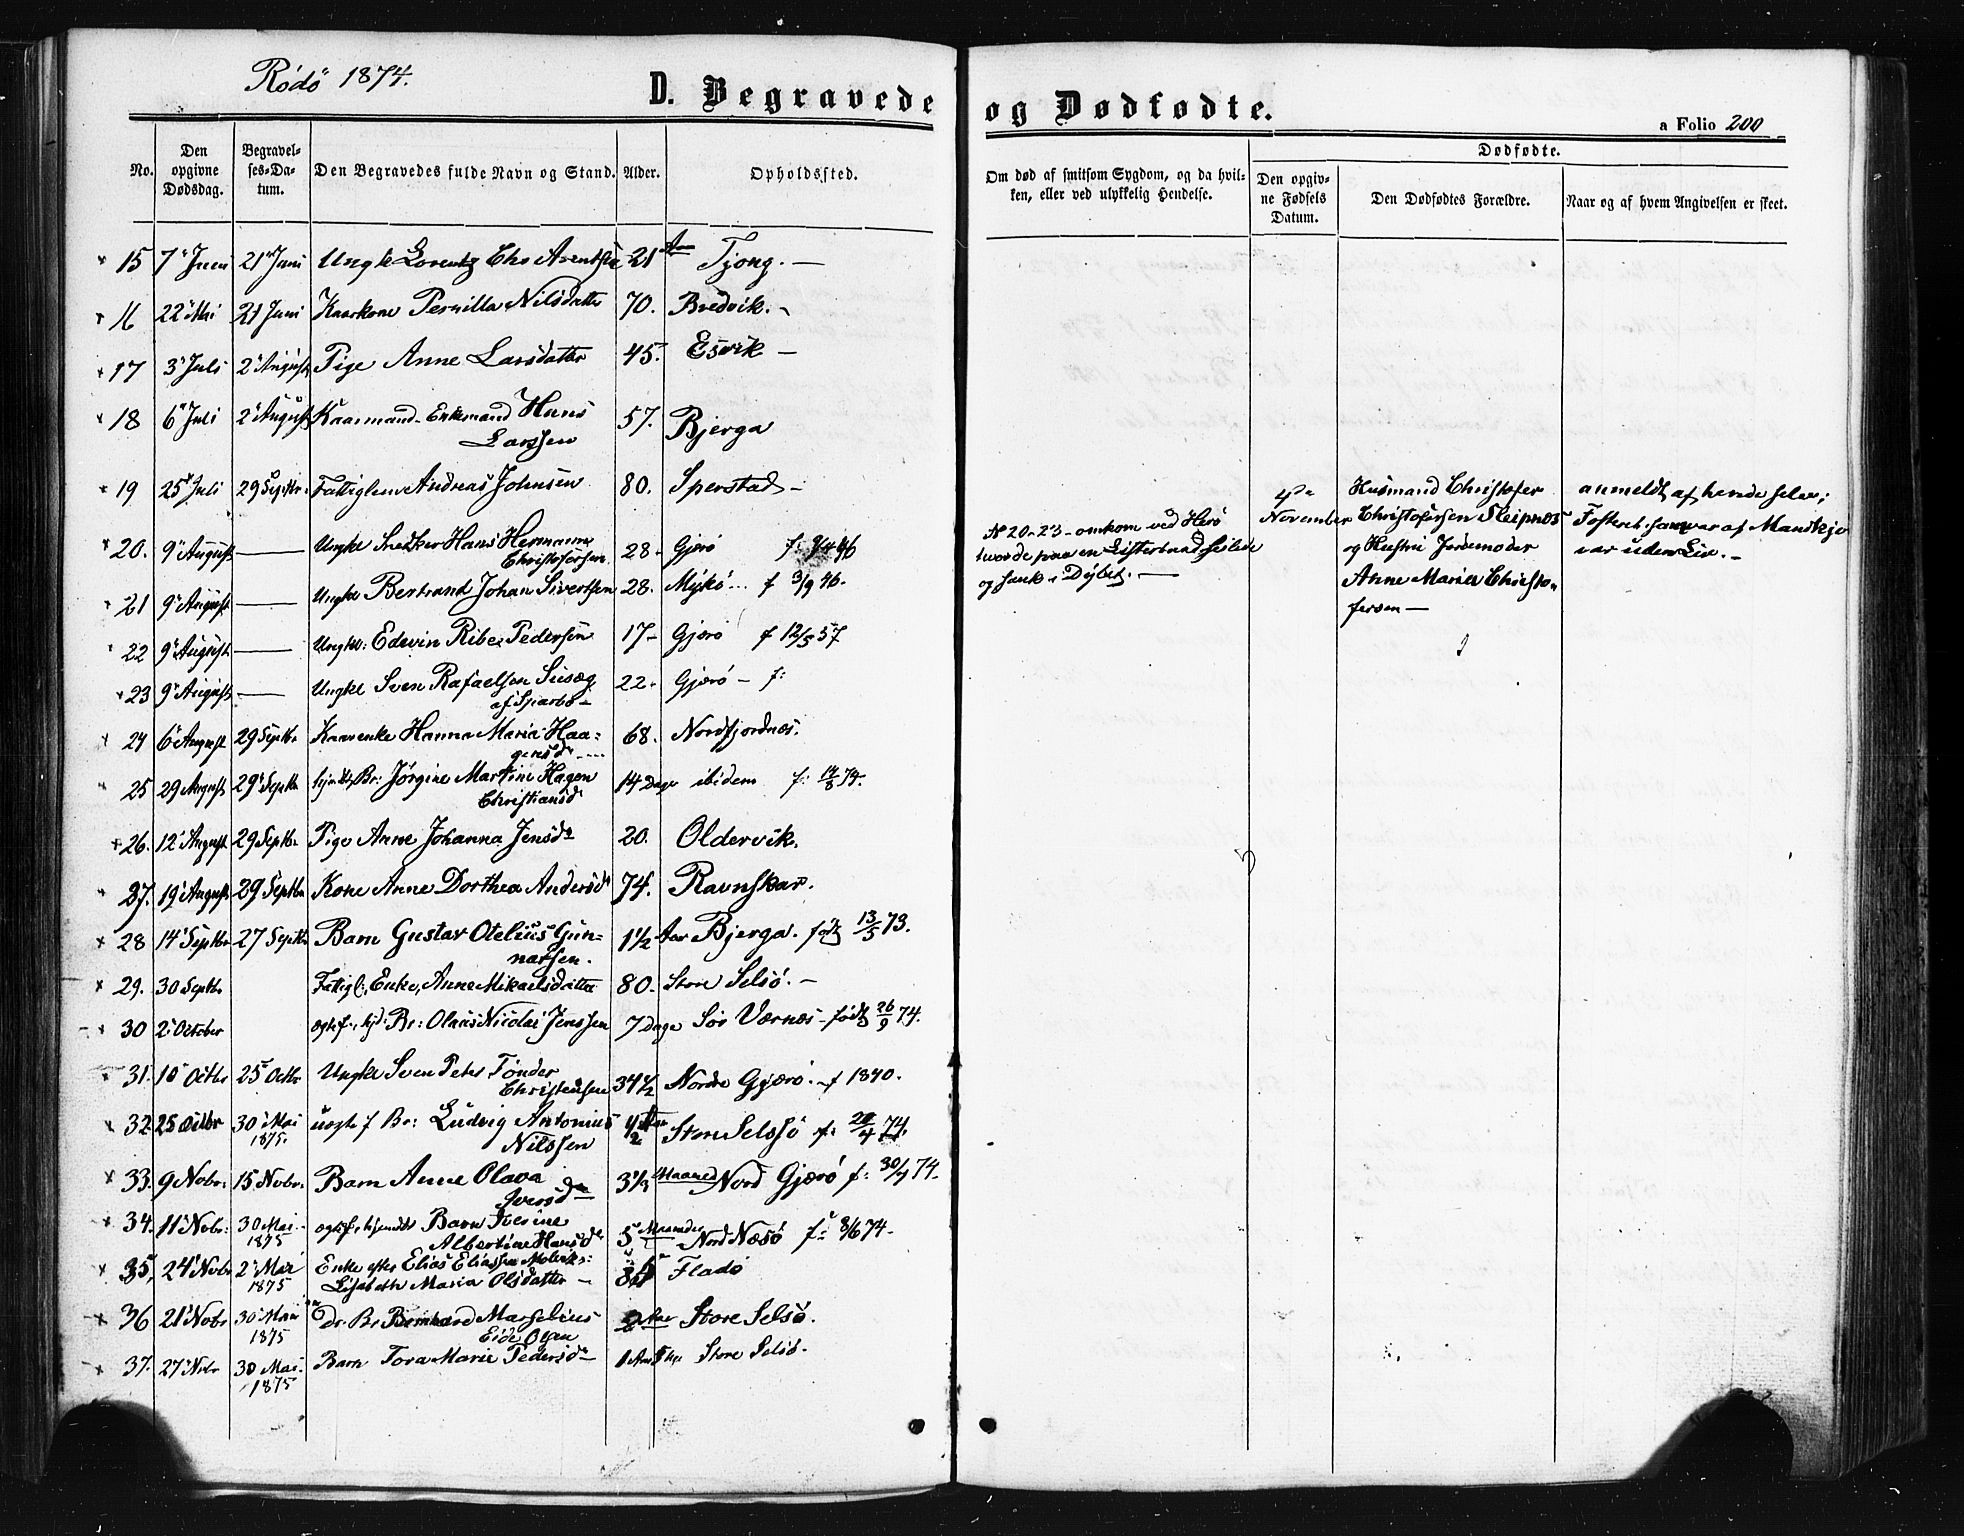 Rödö 1874.
D. Begravede
No.
Den opgivne Dødsdag.
Begravelses-Datum.
Den Begravedes fulde Navn og Stand.
Alder.
Opholdssted.
15 7 Juni 21 Juni Ungk Lorentz Chr Arentsen 21 Aar Tjong. —
16 22 Mai 21 Juni Kaarkone Pernilla Nilsdatter 70. Bredvik. -
17 3 Juli 2 August Pige Anne Larsdatter 45. Esvik —
18 6 Juli 2 August Kaarmand - Enkemand Hans 57. Bjerga
Larssen
19 25 Juli 29 Septbr: Fattiglem Andreas Johnsen 80. Sperstad -
20. 9 August — Ungke Snedker Hans Hermann 28 - Gjerö
Christofersen
21 9 August — Ungke Bertrand Johan Sivertsen 28. Mykö f 3/9 46.
22 9 August — Ungke: Edevin Ribe Pedersen 17 - Gjerö f 12/5 57
23 9 August — Ungke Sven Rafaelsen 22. Gjerö - f:
24 6 August 29 Septbr Kaarenke Hanna Maria Haa- 68. Nordfjordnæs.
gensd
25 29 August 29 Septbr hjdbt Br: Jørgine Martine Hagen 14 Dage ibidem f: 14/8 74.
Christiansd
26. 12 August 29 Septbr Pige Anne Johanna Jensd 20. Oldervik.
27. 19 August 29 Septbr Kone Anne Dorthea Andersd 74. Ravnskar.
28 14 Septbr 27 Septbr Barn Gustav Otelius Gun- 1 1/2 Aar Bjerga. født 13/5 73.
narsen.
29. 30 Septbr Fattigl. Enke, Anne Mikaelsdatter 80. Store Selsö. —
30 2 October ægtef. hjd: Br: Olaus Nicolai Jenssen 7 Dage Sör Værnæs - född 26/9 74.
31. 10 Octbr 25 Octbr Ungke Sven Peter Tönder 34 1/2 Nordre Gjerö. - f 1840.
Christensen
32 25 Octbr 30 Mai uægte f Br: Ludvig Antonius 1/2 Aar Store Selssö f: 20/4 74.
1875. Nilssen
33. 9 Nobr: 15 Nobr. Barn Anne Olava Maaned Nord Gjerö f: 74.
Iversd
34. 11 Nobr: 30 Mai ægtef. hjemdbt Barn Ivesine 5 Maaneder Nord Næsö f: 8/6 74.
1875 Albertine Hansd
35, 24 Nobr 2 Mai Enke efter Elias Eliassen Fladö
1875 Lisabeth Maria Olsdatter —
36 21 Nobr 30 Mai Br Bernhard Marselius 2 Aar Store Selsö.
1875 Eide Olsen
37. 27 Nobr 30 Mai Barn Tora Marie Pedersd 1 Aar Store Selsö.
1875
og Dødfødte.
a Folio 200
Om død af smitsom Sygdom, og da hvilken, eller ved ulykkelig Hendelse.
Dødfødte.
Den opgivne Fødsels Datum.
Den Dødfødtes Forældre.
Naar og af hvem Angivelsen er skeet.
No 20-23 - omkom ved Herö
paa en Listerbaad
og sank i Dybet. —
4de
November
Husmand Christofer
Christofersen Sleipnes
og Hustru Jordemoder
Anne Maria Christo-
fersen —
anmeldt af hende selv;
Fosteret, som var af Mandkjø
var uden Liv. -